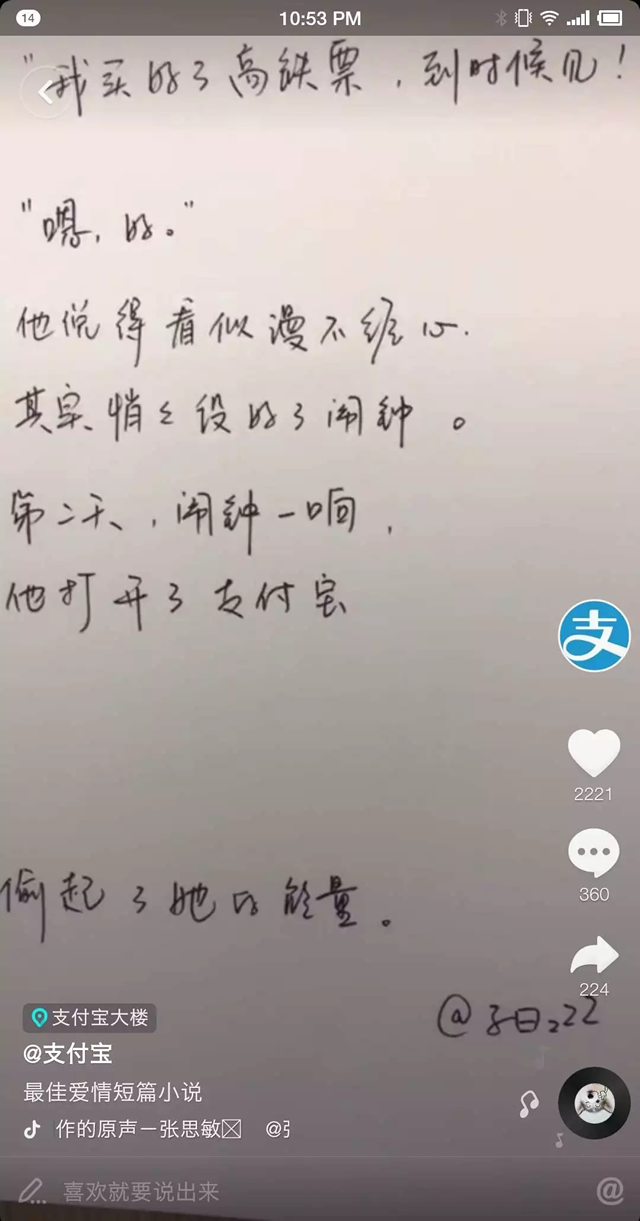 14
10:53 PM
"我买好了高铁票，到时候见！
"嗯，好。"
他说得看似漫不经心.
其实悄々设好了闹钟。
第二天，闹钟一响，
他打开了支付宝
支
2221
360
偷起了她的能量。
224
@子日222
支付宝大楼
@支付宝
最佳爱情短篇小说
作的原声－张思敏 @
喜欢就要说出来
@